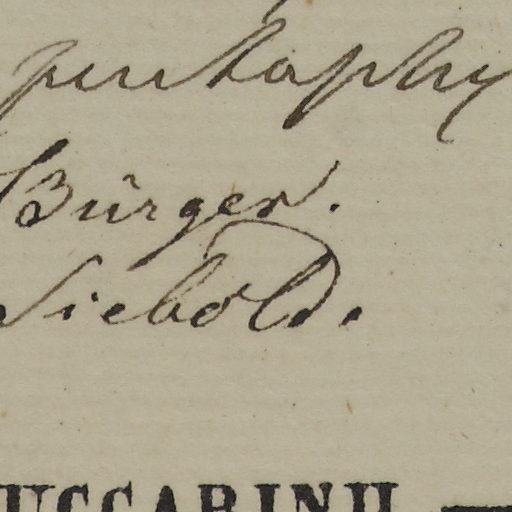 pentaphy
Bürger.
Siebold.
UCCARINII —